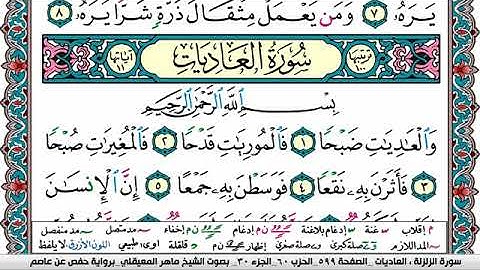 يَرَهُۥ ٧ وَمَن يَعْمَلْ مِثْقَالَ ذَرَّةٍ شَرًّا يَرَهُۥ ٨
ترتيبها ١٠٠ سُورَةُ العَادِيَاتِ آياتها ١١
بِسْمِ ٱللَّهِ ٱلرَّحْمَٰنِ ٱلرَّحِيمِ
وَٱلْعَٰدِيَٰتِ ضَبْحًا ١ فَٱلْمُورِيَٰتِ قَدْحًا ٢ فَٱلْمُغِيرَٰتِ صُبْحًا
٣ فَأَثَرْنَ بِهِۦ نَقْعًا ٤ فَوَسَطْنَ بِهِۦ جَمْعًا ٥ إِنَّ ٱلْإِنسَٰنَ
م إقلاب س غنة إدغام بلاغنة ن م إدغام ن م إخفاء مد متصل مد منفصل
المد اللازم صلة كبرى وصلة صغرى إظهار ن م قلقلة طبيعي اللون الأزرق لا يلفظ
سورة الزلزلة ، العاديات _ الصفحة ٥٩٩_ الحزب ٦٠_ الجزء ٣٠_ بصوت الشيخ ماهر المعيقلي_ برواية حفص عن عاصم